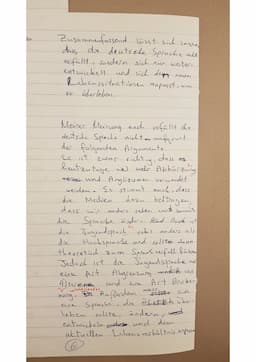 Zusammenfassend lässt sich sagen,
dass die deutsche Sprache nicht
zerfällt, sondern sich nur weiter
entwickelt und sich den neuen
Lebenssituationen anpasst, um
zu überleben.
Meiner Meinung nach zerfällt die
deutsche Sprache nicht aufgrund
der folgenden Argumente.
Es ist zwar richtig, dass es
heutzutage viel mehr Abkürzung
und Anglizismen verwendet
werden. Es stimmt auch, dass
die Medien dazu beitragen,
dass wir anders reden und somit
die Sprache
die Jugendsprache anders als
die Hochsprache und sollte dann
theoretisch zum Sprachverfall führen
Jedoch ist die Jugendsprache nur
eine Art Abgrenzung
und eine Art
eine Sprache, die
leben sollte, ändern,
entwickeln und dem
aktuellen Lebensverhältnis anpassen
6